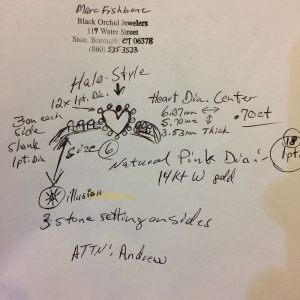 Marc Fishbone
Black Orchid Jewelers
119 Water Street
Ston. Borough, CT 06378
(860) 535 3523
Halo-Style
12x 1pt. Dia.
Heart Dia. Center
6.07mm
5.70mm
3.53mm Thick
.70ct
3 on each
side
shank
1pt. Dia
Size 6
Natural Pink Dia:-
18
1pt.
14Kt W gold
illusion
3-stone setting on sides
ATTN: Andrew